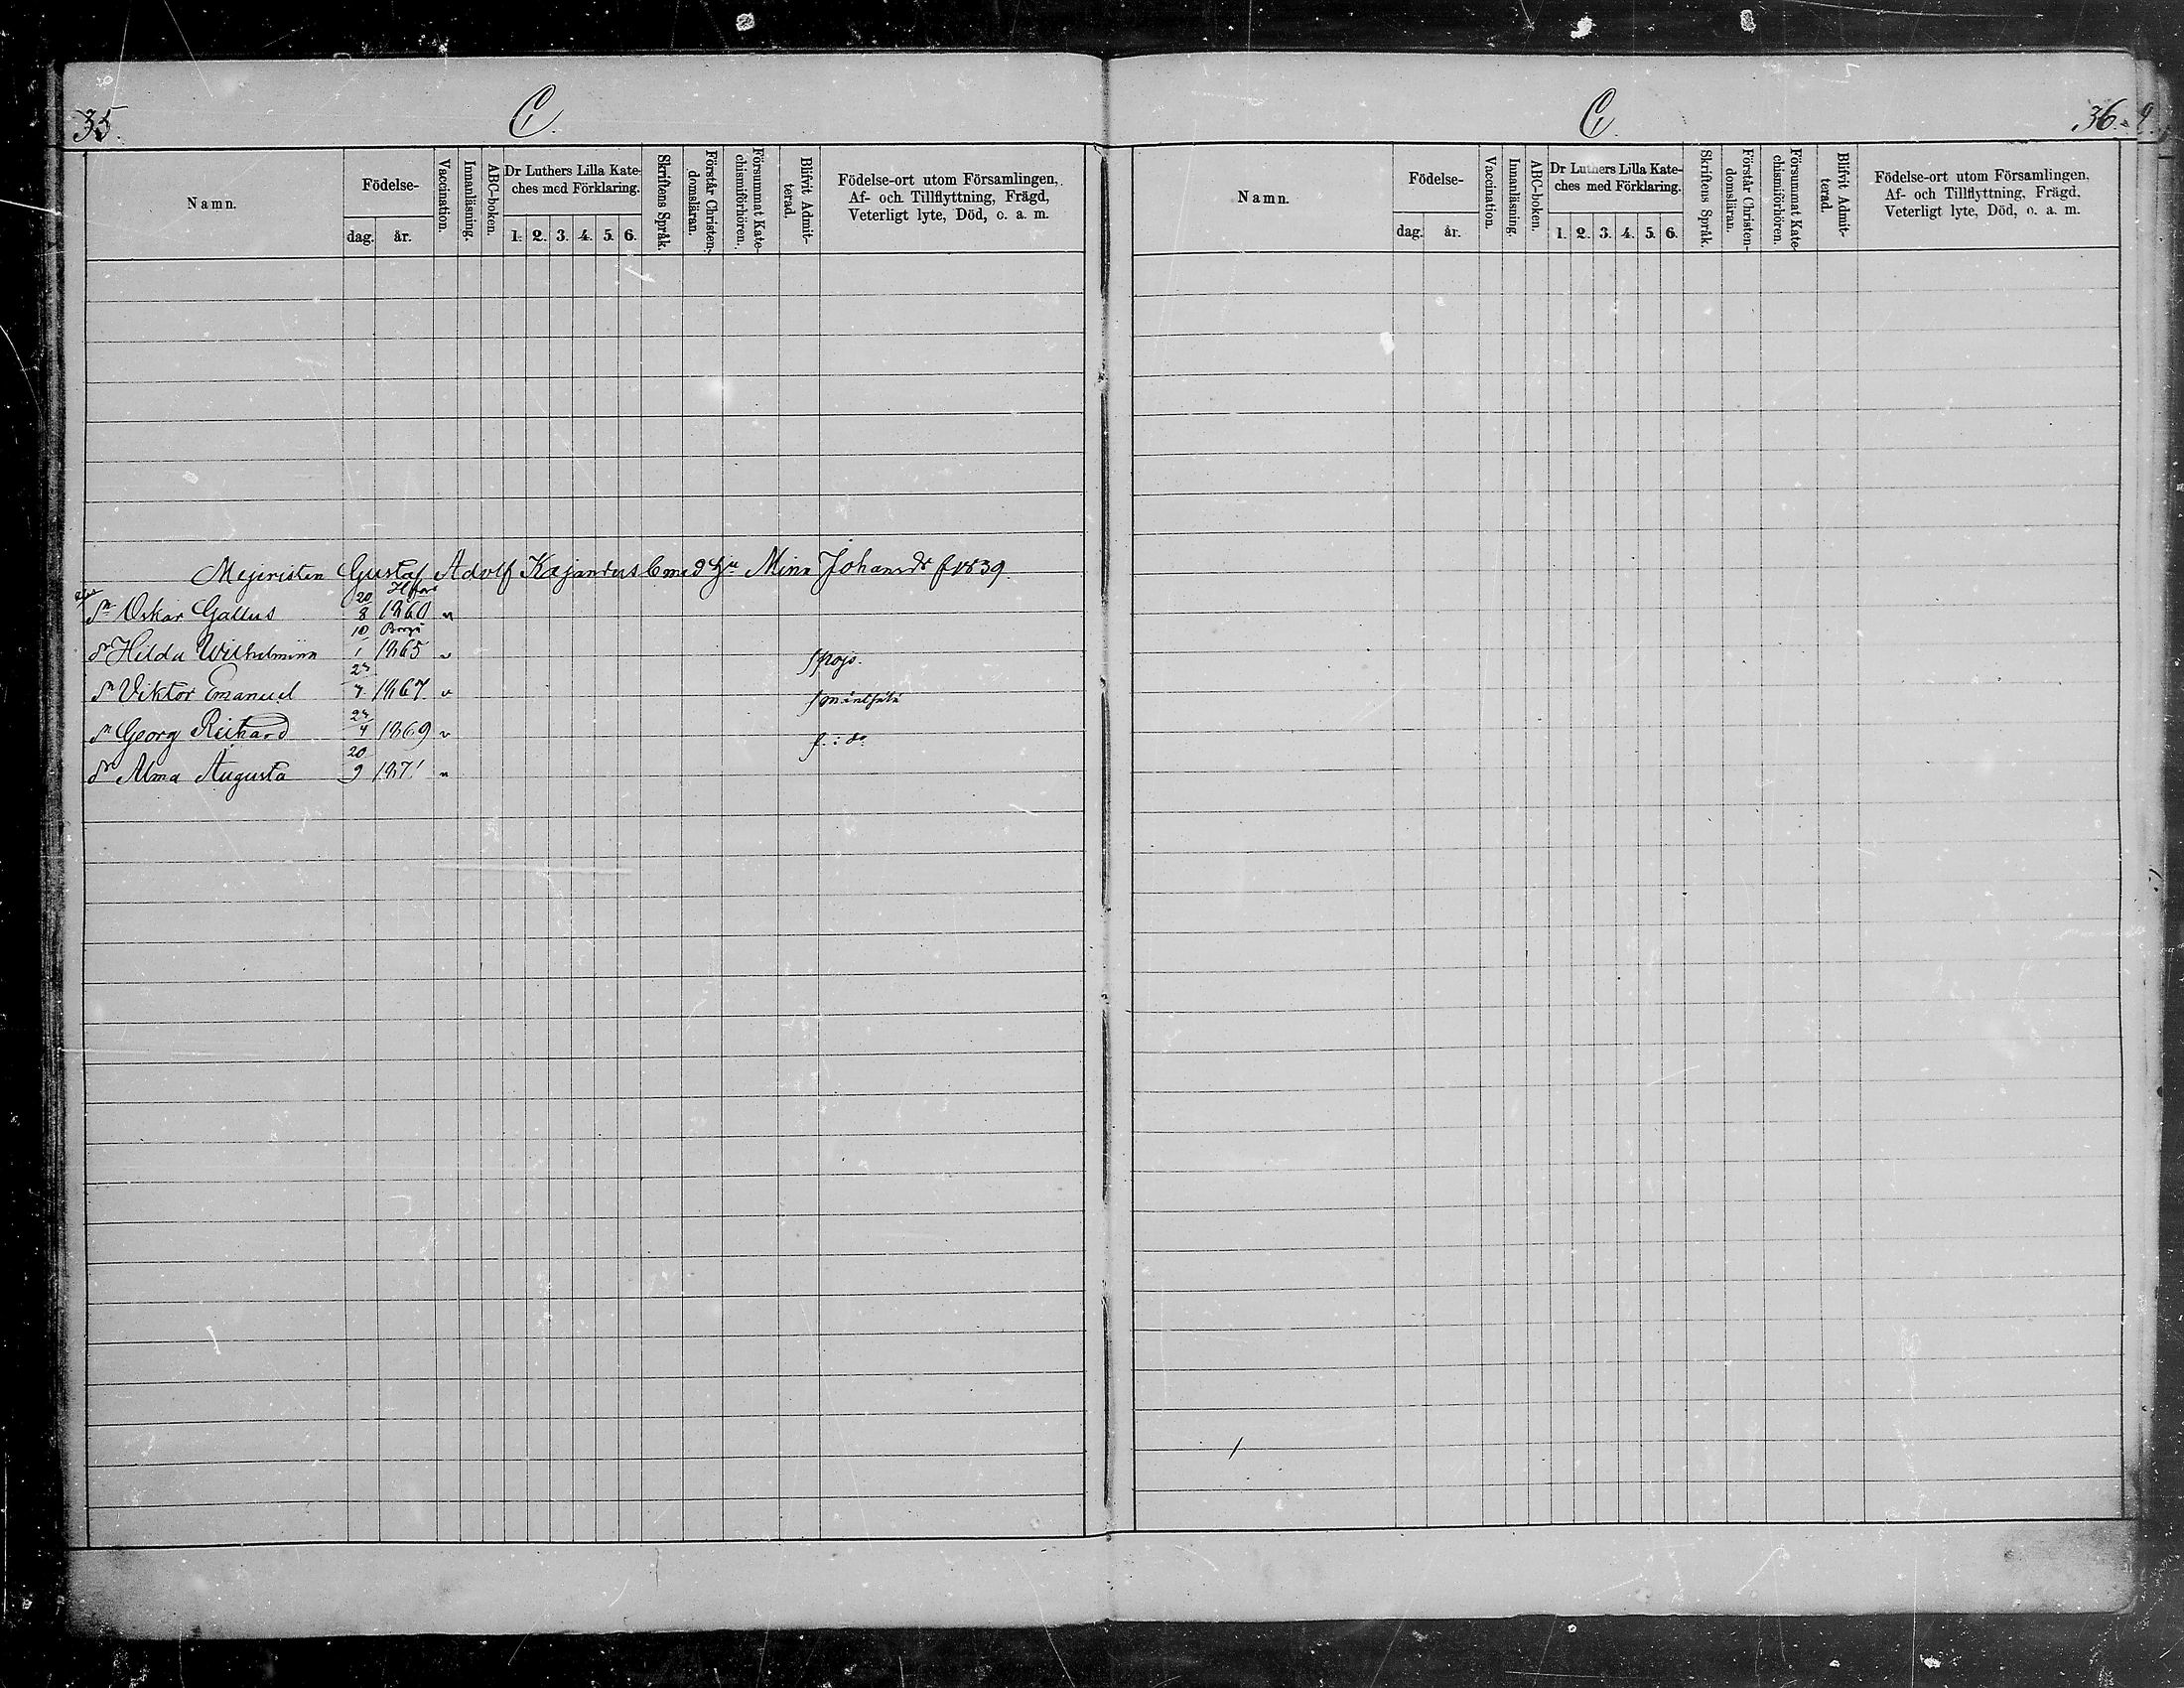 35.
C.
Namn.
Födelse-
dag.
år.
Vaccination.
Innanläsning.
ABC-boken.
Dr Luthers Lilla Kate-
ches med Förklaring.
1. 2. 3. 4. 5. 6.
Skriftens Språk.
Förstår Christen-
domsläran.
Försummat Kate-
chismiförhören.
Blifvit Admit-
terad.
Födelse-ort utom Församlingen,
Af- och Tillflyttning, Frägd,
Veterligt lyte, Död, o. a. m.
Mejeristen Gustaf Adolf Kajanders med Hu Mina Johansdr f 1839.
Hfors
Sn Oskar Gallus 20/8 1860 v
Borgå
dr Hilda Wilhelmina 10/1 1865 v f Pojo.
Sn Viktor Emanuel 27/7 1867 v f
Sn Georg Reikard 27/4 1869 v f. : do
dr Alma Augusta 20/9 1871 v
C.
36.
Namn.
Födelse-
dag.
år.
Vaccination.
Innanläsning.
ABC-boken.
Dr Luthers Lilla Kate-
ches med Förklaring.
1. 2. 3. 4. 5. 6.
Skriftens Språk.
Förstår Christen-
domsläran.
Försummat Kate-
chismiförhören.
Blifvit Admit-
terad.
Födelse-ort utom Församlingen,
Af- och Tillflyttning, Frägd,
Veterligt lyte, Död, o. a. m.